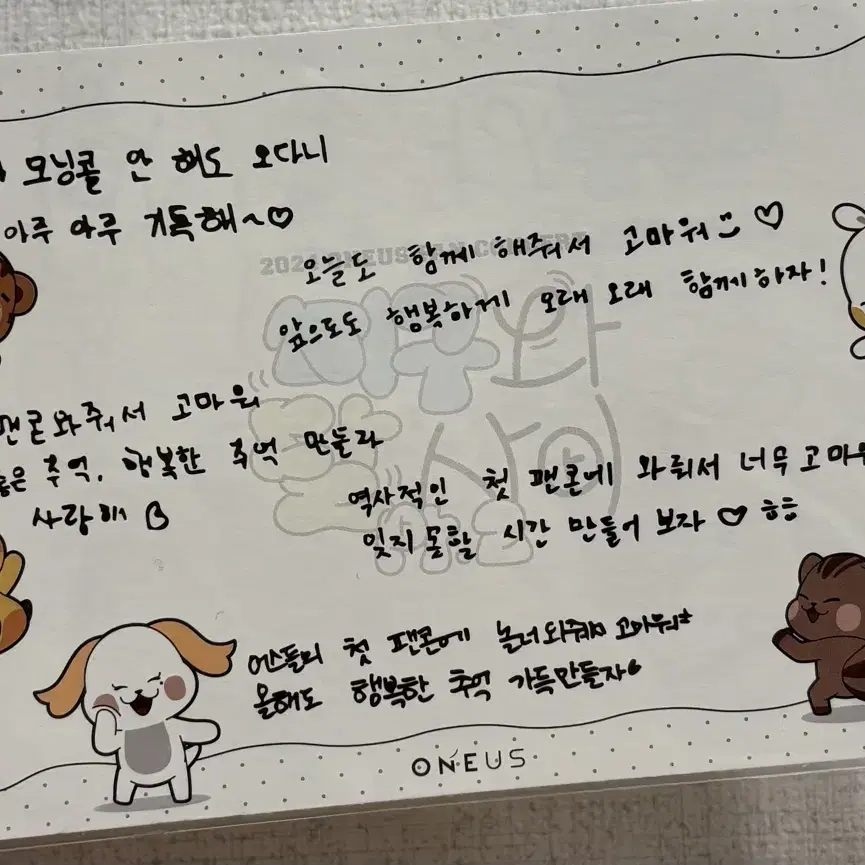 모닝콜 안 해도 오다니
아주 아주 기특해~♡
오늘도 함께 해줘서 고마워 ♡
앞으로도 행복하게 오래 오래 함께하자!
팬콘 와줘서 고마워
좋은 추억, 행복한 추억 만들자
사랑해
역사적인 첫 팬콘에 와줘서 너무 고마워
잊지 못할 시간 만들어 보자 ♡ ㅎㅎ
어스들의 첫 팬콘에 놀러와줘서 고마워
올해도 행복한 추억 가득 만들자
ONEUS